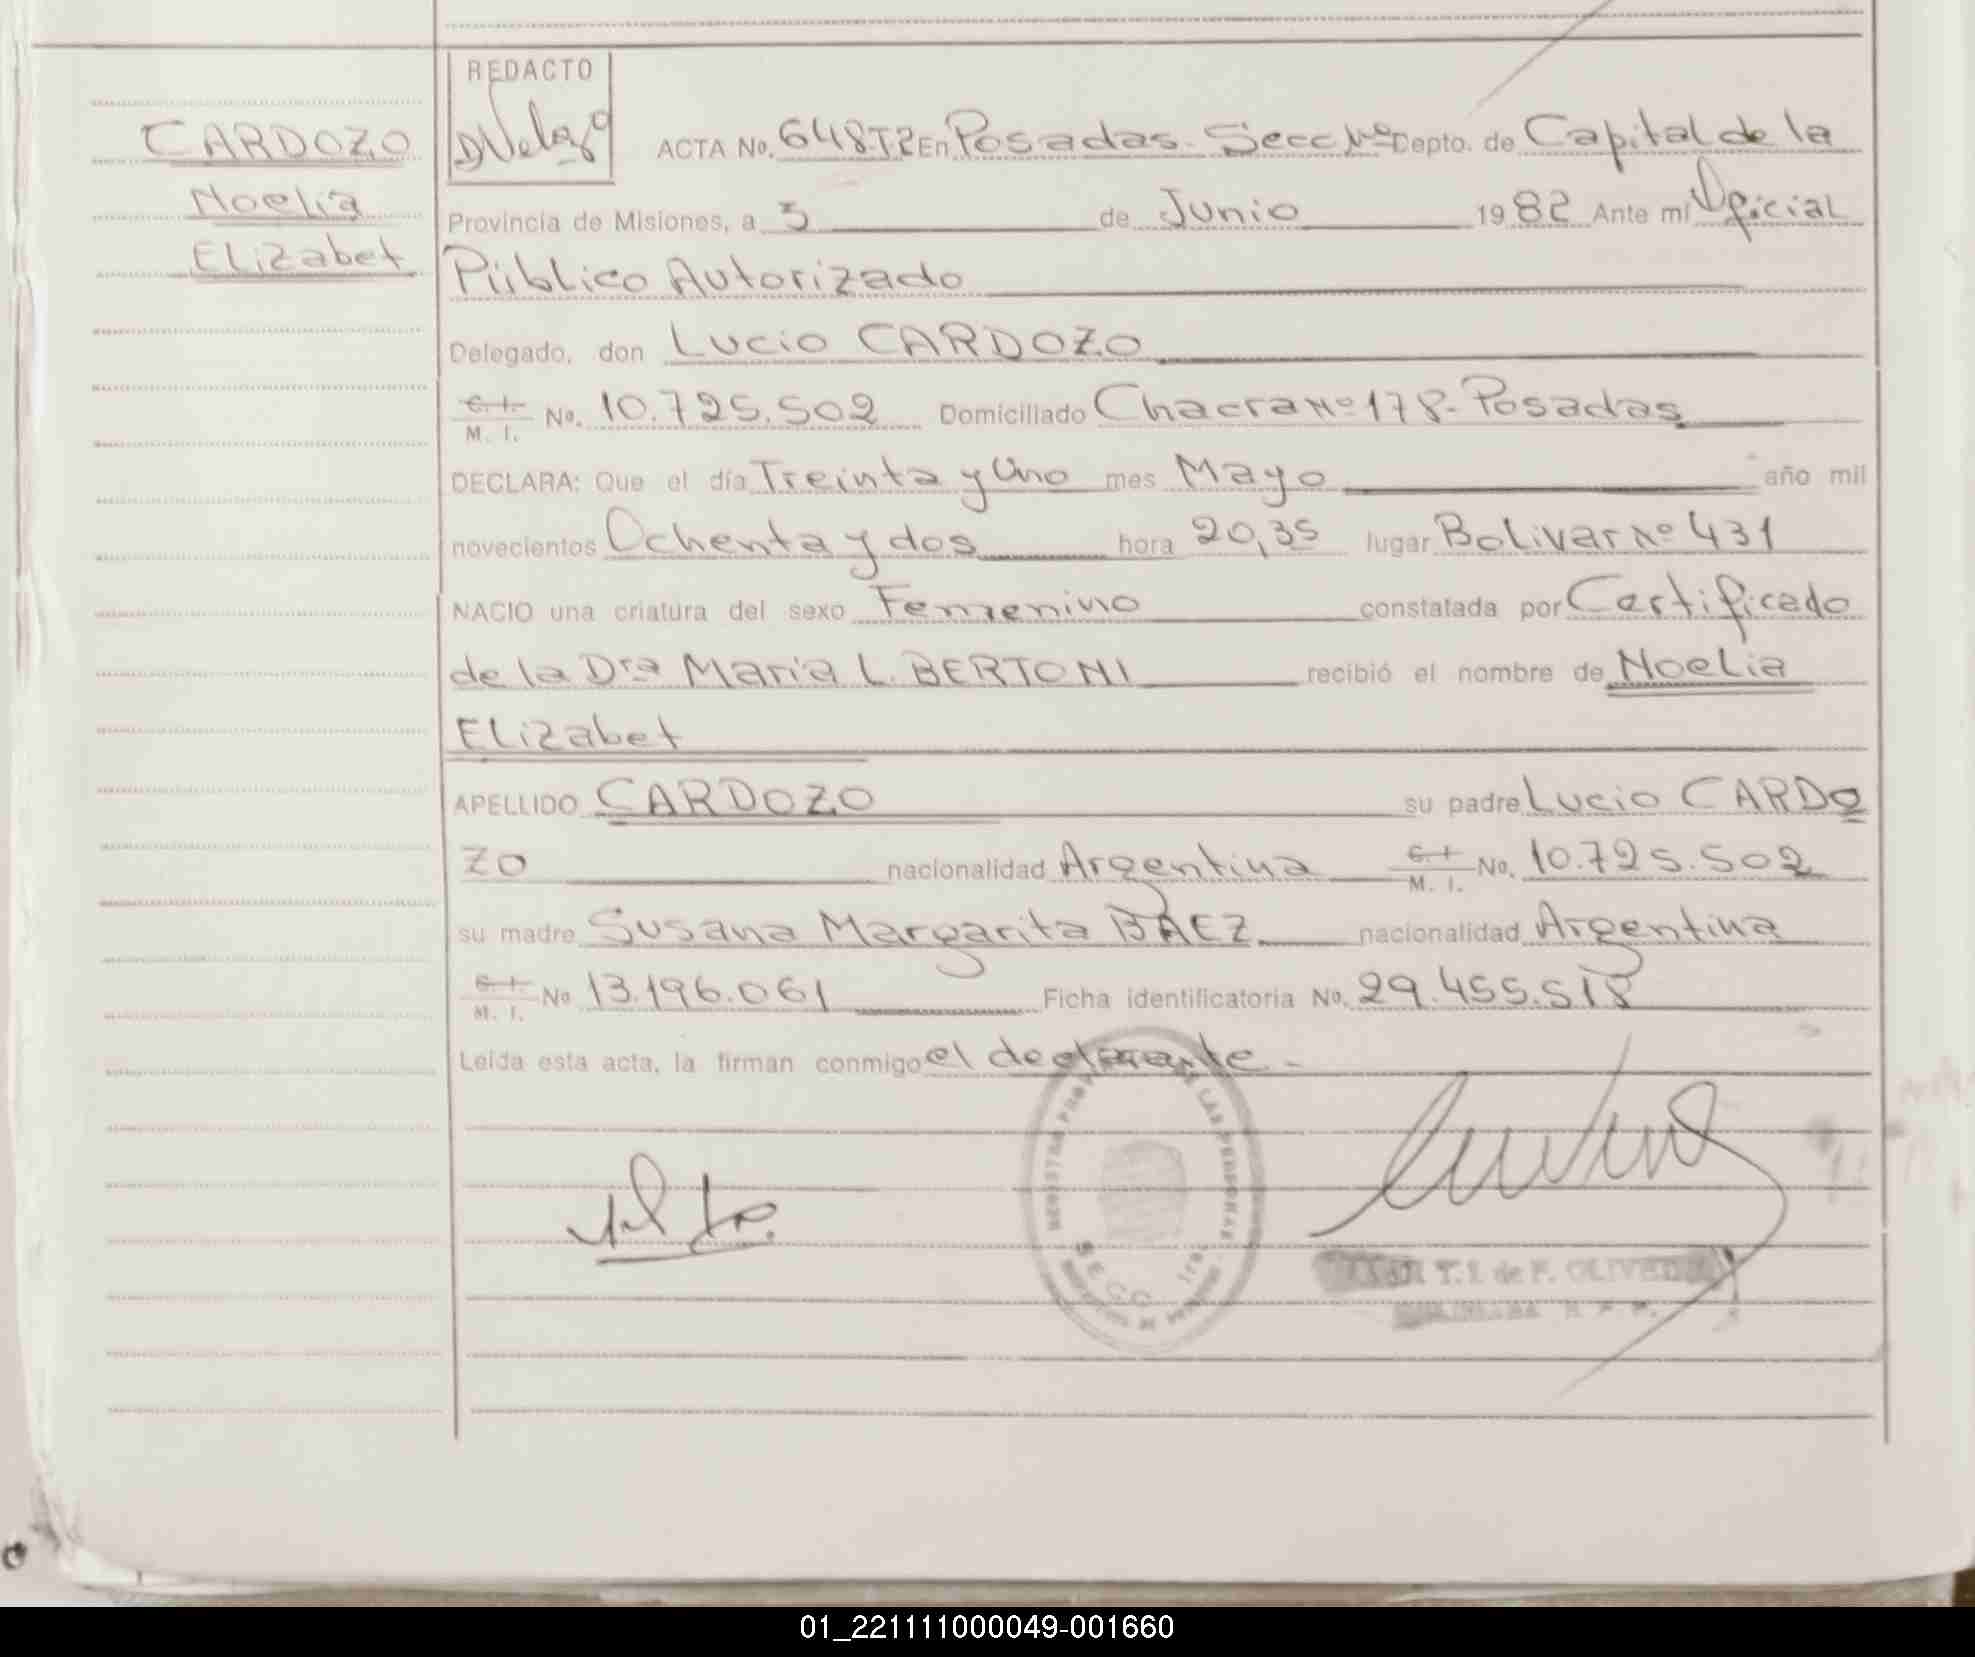 REDACTO
CARDOZO
Noelia
ELizabet
ACTA No. 648-T2 En Posadas - Secc Depto. de Capital de la
Provincia de Misiones, a 3 de Junio 1982 Ante mí Oficial
Público Autorizado
Delegado, don Lucio CARDOZO
C. I. M. I. No. 10.725.502 Domiciliado Chacra Nº 178 - Posadas
DECLARA: Que el día Treinta y Uno mes Mayo año mil
novecientos Ochenta y dos hora 20,35 lugar Bolivar Nº 431
NACIO una criatura del sexo Femenino constatada por Certificado
de la Dra Maria L. BERTONI recibió el nombre de Noelia
ELizabet
APELLIDO CARDOZO su padre Lucio CARDO
ZO nacionalidad Argentina C. I. M. I. No. 10.725.502
su madre Susana Margarita BAEZ nacionalidad Argentina
C. I. M. I. No 13.196.061 Ficha identificatoria No. 29.455.518
Leída esta acta, la firman conmigo el declarante -
DE LAS PERSONAS
SECC 1ra.
T. I. de F. OLIVERA
01_221111000049-001660